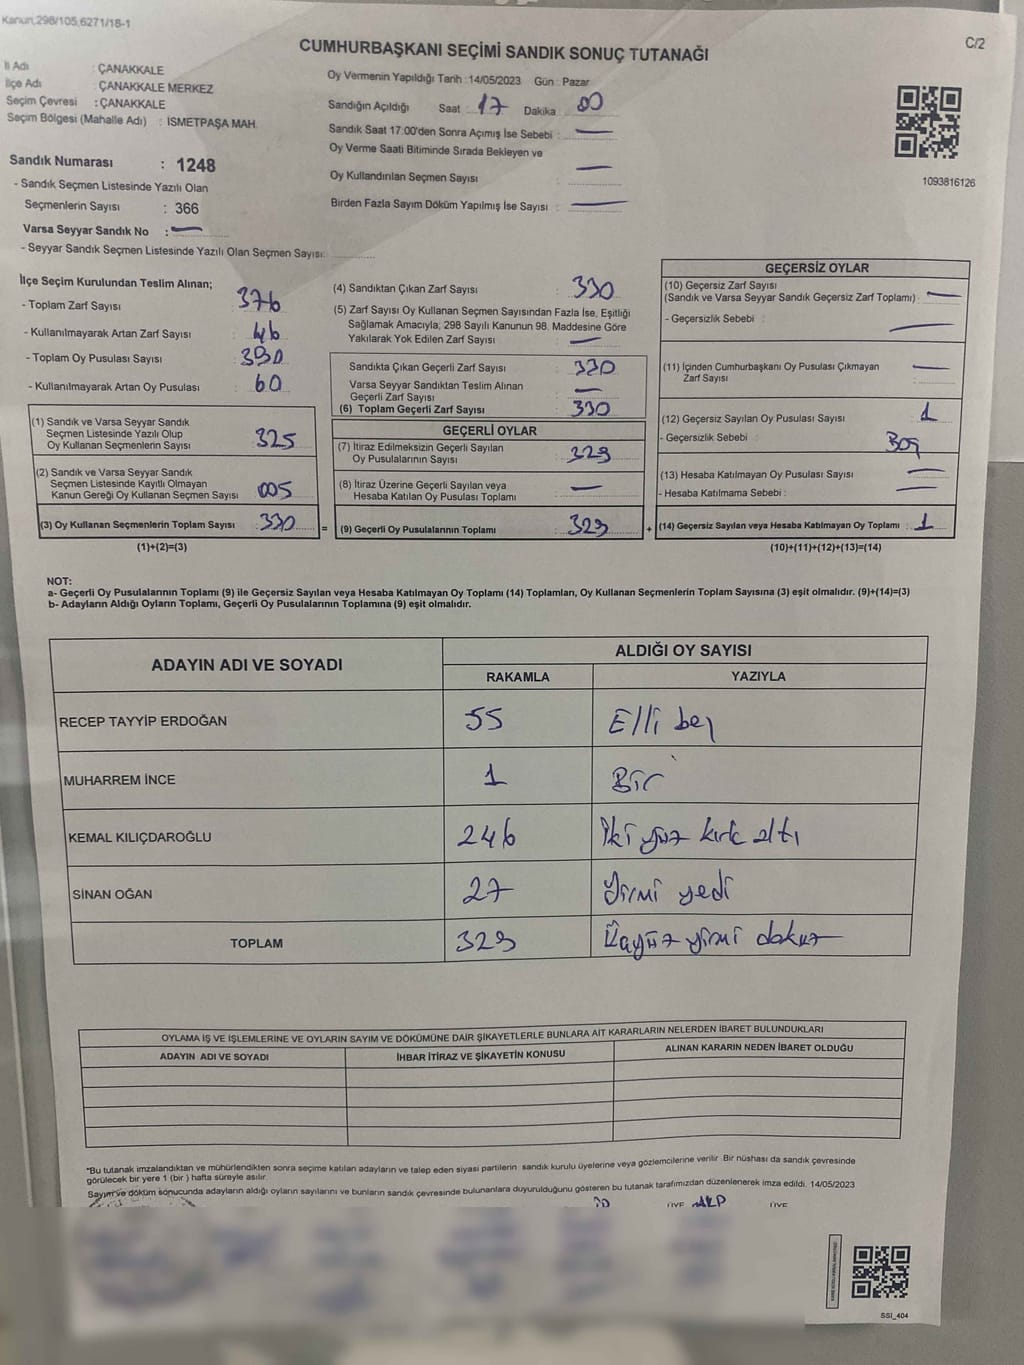 Kanun,298/105,6271/18-1
C/2
CUMHURBAŞKANI SEÇİMİ SANDIK SONUÇ TUTANAĞI
İl Adı : ÇANAKKALE
İlçe Adı : ÇANAKKALE MERKEZ
Seçim Çevresi : ÇANAKKALE
Seçim Bölgesi (Mahalle Adı) : İSMETPAŞA MAH.
Sandık Numarası : 1248
- Sandık Seçmen Listesinde Yazılı Olan
Seçmenlerin Sayısı : 366
Varsa Seyyar Sandık No : —
- Seyyar Sandık Seçmen Listesinde Yazılı Olan Seçmen Sayısı:
Oy Vermenin Yapıldığı Tarih :14/05/2023 Gün : Pazar
Sandığın Açıldığı Saat 17 Dakika 00
Sandık Saat 17:00'den Sonra Açımış İse Sebebi : —
Oy Verme Saati Bitiminde Sırada Bekleyen ve
Oy Kullandırılan Seçmen Sayısı : —
Birden Fazla Sayım Döküm Yapılmış İse Sayısı : —
1093816126
İlçe Seçim Kurulundan Teslim Alınan;
- Toplam Zarf Sayısı : 376
- Kullanılmayarak Artan Zarf Sayısı : 46
- Toplam Oy Pusulası Sayısı : 390
- Kullanılmayarak Artan Oy Pusulası : 60
(1) Sandık ve Varsa Seyyar Sandık
Seçmen Listesinde Yazılı Olup
Oy Kullanan Seçmenlerin Sayısı : 325
(2) Sandık ve Varsa Seyyar Sandık
Seçmen Listesinde Kayıtlı Olmayan
Kanun Gereği Oy Kullanan Seçmen Sayısı : 005
(3) Oy Kullanan Seçmenlerin Toplam Sayısı : 330 =
(1)+(2)=(3)
(4) Sandıktan Çıkan Zarf Sayısı : 330
(5) Zarf Sayısı Oy Kullanan Seçmen Sayısından Fazla İse, Eşitliği
Sağlamak Amacıyla; 298 Sayılı Kanunun 98. Maddesine Göre
Yakılarak Yok Edilen Zarf Sayısı : —
Sandıkta Çıkan Geçerli Zarf Sayısı : 330
Varsa Seyyar Sandıktan Teslim Alınan
Geçerli Zarf Sayısı : —
(6) Toplam Geçerli Zarf Sayısı : 330
GEÇERLİ OYLAR
(7) İtiraz Edilmeksizin Geçerli Sayılan
Oy Pusulalarının Sayısı : 329
(8) İtiraz Üzerine Geçerli Sayılan veya
Hesaba Katılan Oy Pusulası Toplamı : —
(9) Geçerli Oy Pusulalarının Toplamı : 329 +
GEÇERSİZ OYLAR
(10) Geçersiz Zarf Sayısı
(Sandık ve Varsa Seyyar Sandık Geçersiz Zarf Toplamı) : —
- Geçersizlik Sebebi : —
(11) İçinden Cumhurbaşkanı Oy Pusulası Çıkmayan
Zarf Sayısı : —
(12) Geçersiz Sayılan Oy Pusulası Sayısı : 1
- Geçersizlik Sebebi : Boş
(13) Hesaba Katılmayan Oy Pusulası Sayısı : —
- Hesaba Katılmama Sebebi : —
(14) Geçersiz Sayılan veya Hesaba Katılmayan Oy Toplamı : 1
(10)+(11)+(12)+(13)=(14)
NOT:
a- Geçerli Oy Pusulalarının Toplamı (9) ile Geçersiz Sayılan veya Hesaba Katılmayan Oy Toplamı (14) Toplamları, Oy Kullanan Seçmenlerin Toplam Sayısına (3) eşit olmalıdır. (9)+(14)=(3)
b- Adayların Aldığı Oyların Toplamı, Geçerli Oy Pusulalarının Toplamına (9) eşit olmalıdır.
ADAYIN ADI VE SOYADI ALDIĞI OY SAYISI
RAKAMLA YAZIYLA
RECEP TAYYİP ERDOĞAN 55 Elli beş
MUHARREM İNCE 1 Bir
KEMAL KILIÇDAROĞLU 246 İki yüz kırk altı
SİNAN OĞAN 27 Yirmi yedi
TOPLAM 329 Üçyüz yirmi dokuz
OYLAMA İŞ VE İŞLEMLERİNE VE OYLARIN SAYIM VE DÖKÜMÜNE DAİR ŞİKAYETLERLE BUNLARA AİT KARARLARIN NELERDEN İBARET BULUNDUKLARI
ADAYIN ADI VE SOYADI İHBAR İTİRAZ VE ŞİKAYETİN KONUSU ALINAN KARARIN NEDEN İBARET OLDUĞU
*Bu tutanak imzalandıktan ve mühürlendikten sonra seçime katılan adayların ve talep eden siyasi partilerin sandık kurulu üyelerine veya gözlemcilerine verilir. Bir nüshası da sandık çevresinde
görülecek bir yere 1 (bir) hafta süreyle asılır.
Sayım ve döküm sonucunda adayların aldığı oyların sayılarını ve bunların sandık çevresinde bulunanlara duyurulduğunu gösteren bu tutanak tarafımızdan düzenlenerek imza edildi. 14/05/2023
ÜYE AKP ÜYE
SSI_404